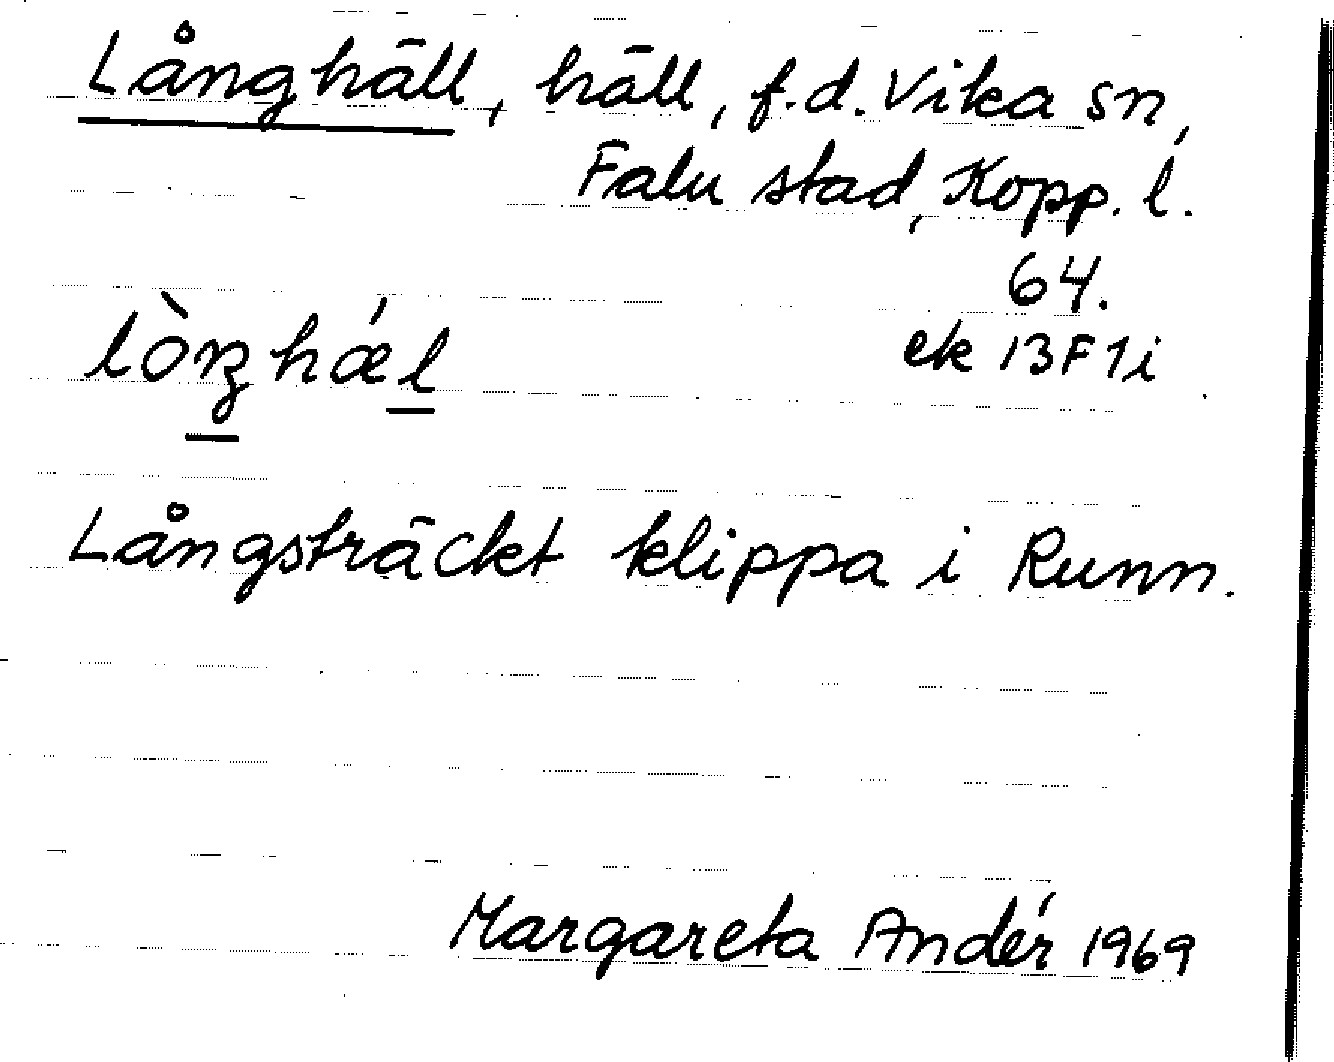 Långhäll, häll, f.d. Vika sn,
Falu stad, Kopp. l.
64.
ek 13F1i
lòŋhǽl
Långsträckt klippa i Runn.
Margareta Andér 1969